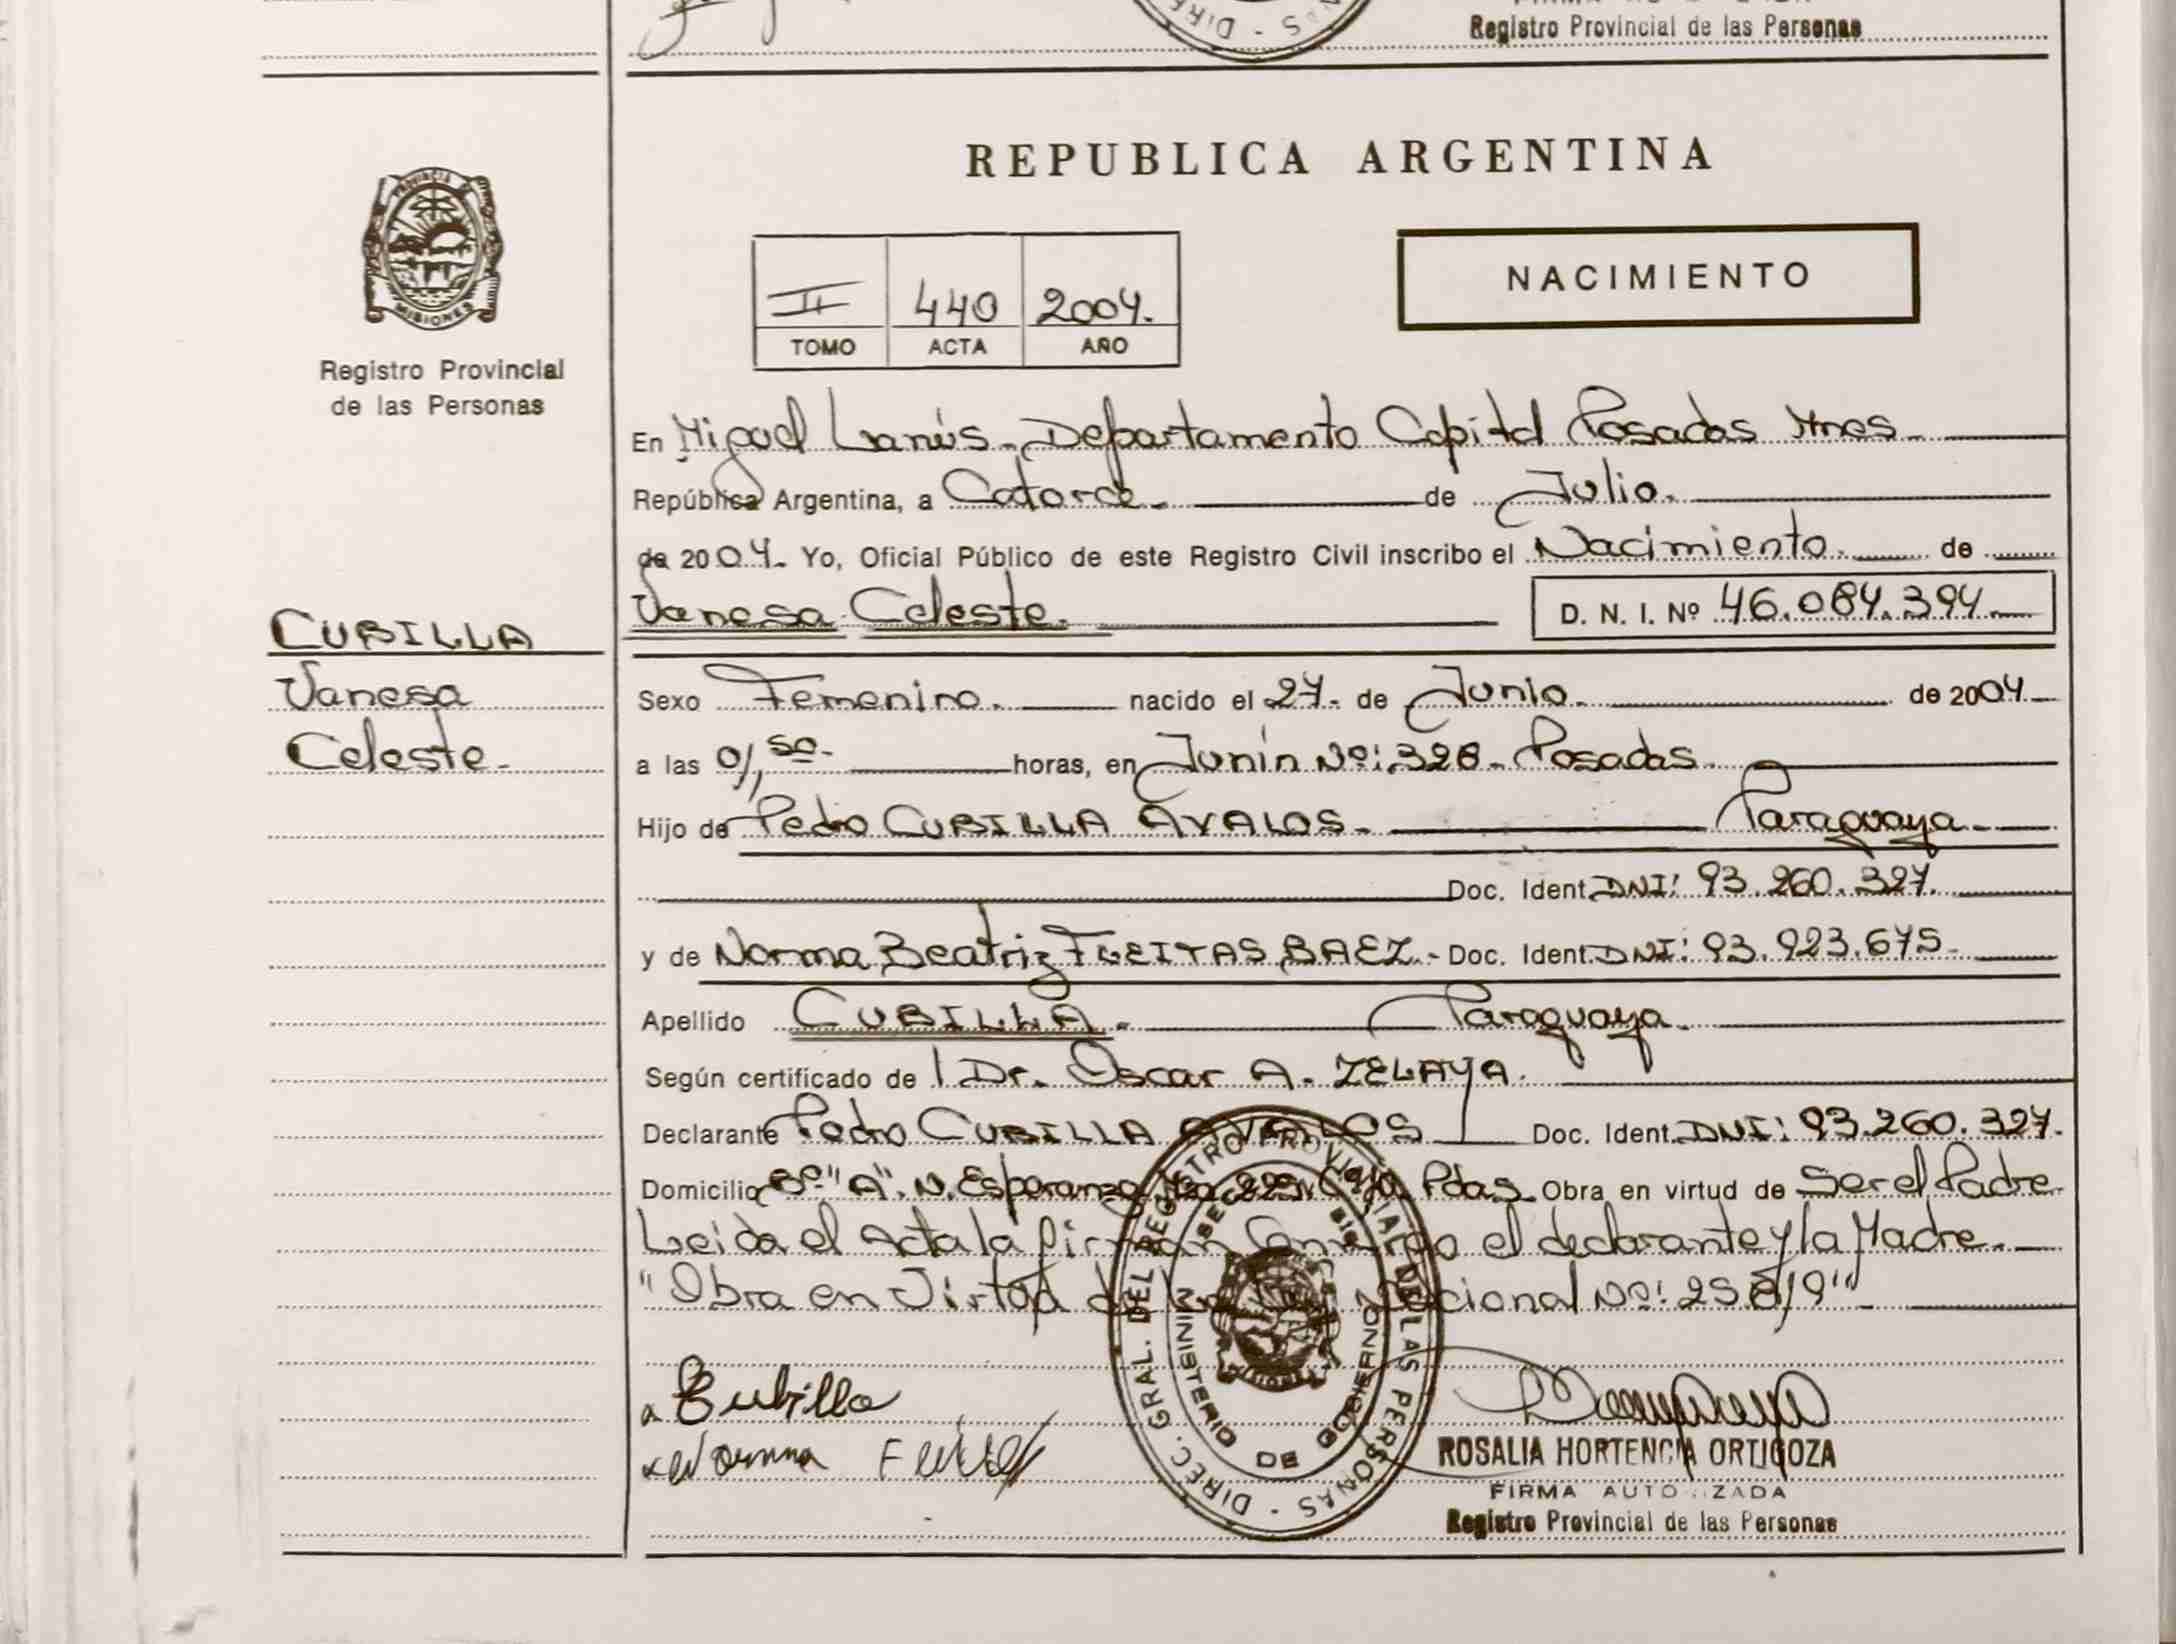 Registro Provincial de las Personas
REPUBLICA ARGENTINA
PROVINCIA DE
MISIONES
Registro Provincial
de las Personas
NACIMIENTO
II 440 2004.
TOMO ACTA AÑO
En Miguel Lanús. Departamento Capital Posadas Mnes
República Argentina, a Catorce. de Julio.
de 2004. Yo, Oficial Público de este Registro Civil inscribo el Nacimiento. de
Vanesa Celeste. D. N. I. Nº 46.084.394.
CUBILLA
Vanesa
Celeste.
Sexo Femenino. nacido el 27. de Junio. de 2004
a las 01,50. horas, en Junín Nº: 328. Posadas.
Hijo de Pedro CUBILLA AVALOS. Paraguaya.
Doc. Ident. DNI: 93.260.327.
y de Norma Beatriz FLEITAS BAEZ.- Doc. Ident. DNI: 93.923.675.
Apellido CUBILLA. Paraguaya.
Según certificado de l Dr. Oscar A. ZELAYA.
Declarante Pedro CUBILLA AVALOS Doc. Ident. DNI: 93.260.327.
Domicilio Bº "A". N. Esperanza Pdas. Obra en virtud de Ser el Padre
Leida el Acta la firman Conmigo el declarante y la Madre.
"Obra en Virtud de la Ley Nacional Nº: 25819".
Cubilla
Norma
DIREC. GRAL. DEL REGISTRO PROVINCIAL DE LAS PERSONAS
MINISTERIO DE GOBIERNO
MISIONES
ROSALIA HORTENCIA ORTIGOZA
FIRMA AUTORIZADA
Registro Provincial de las Personas